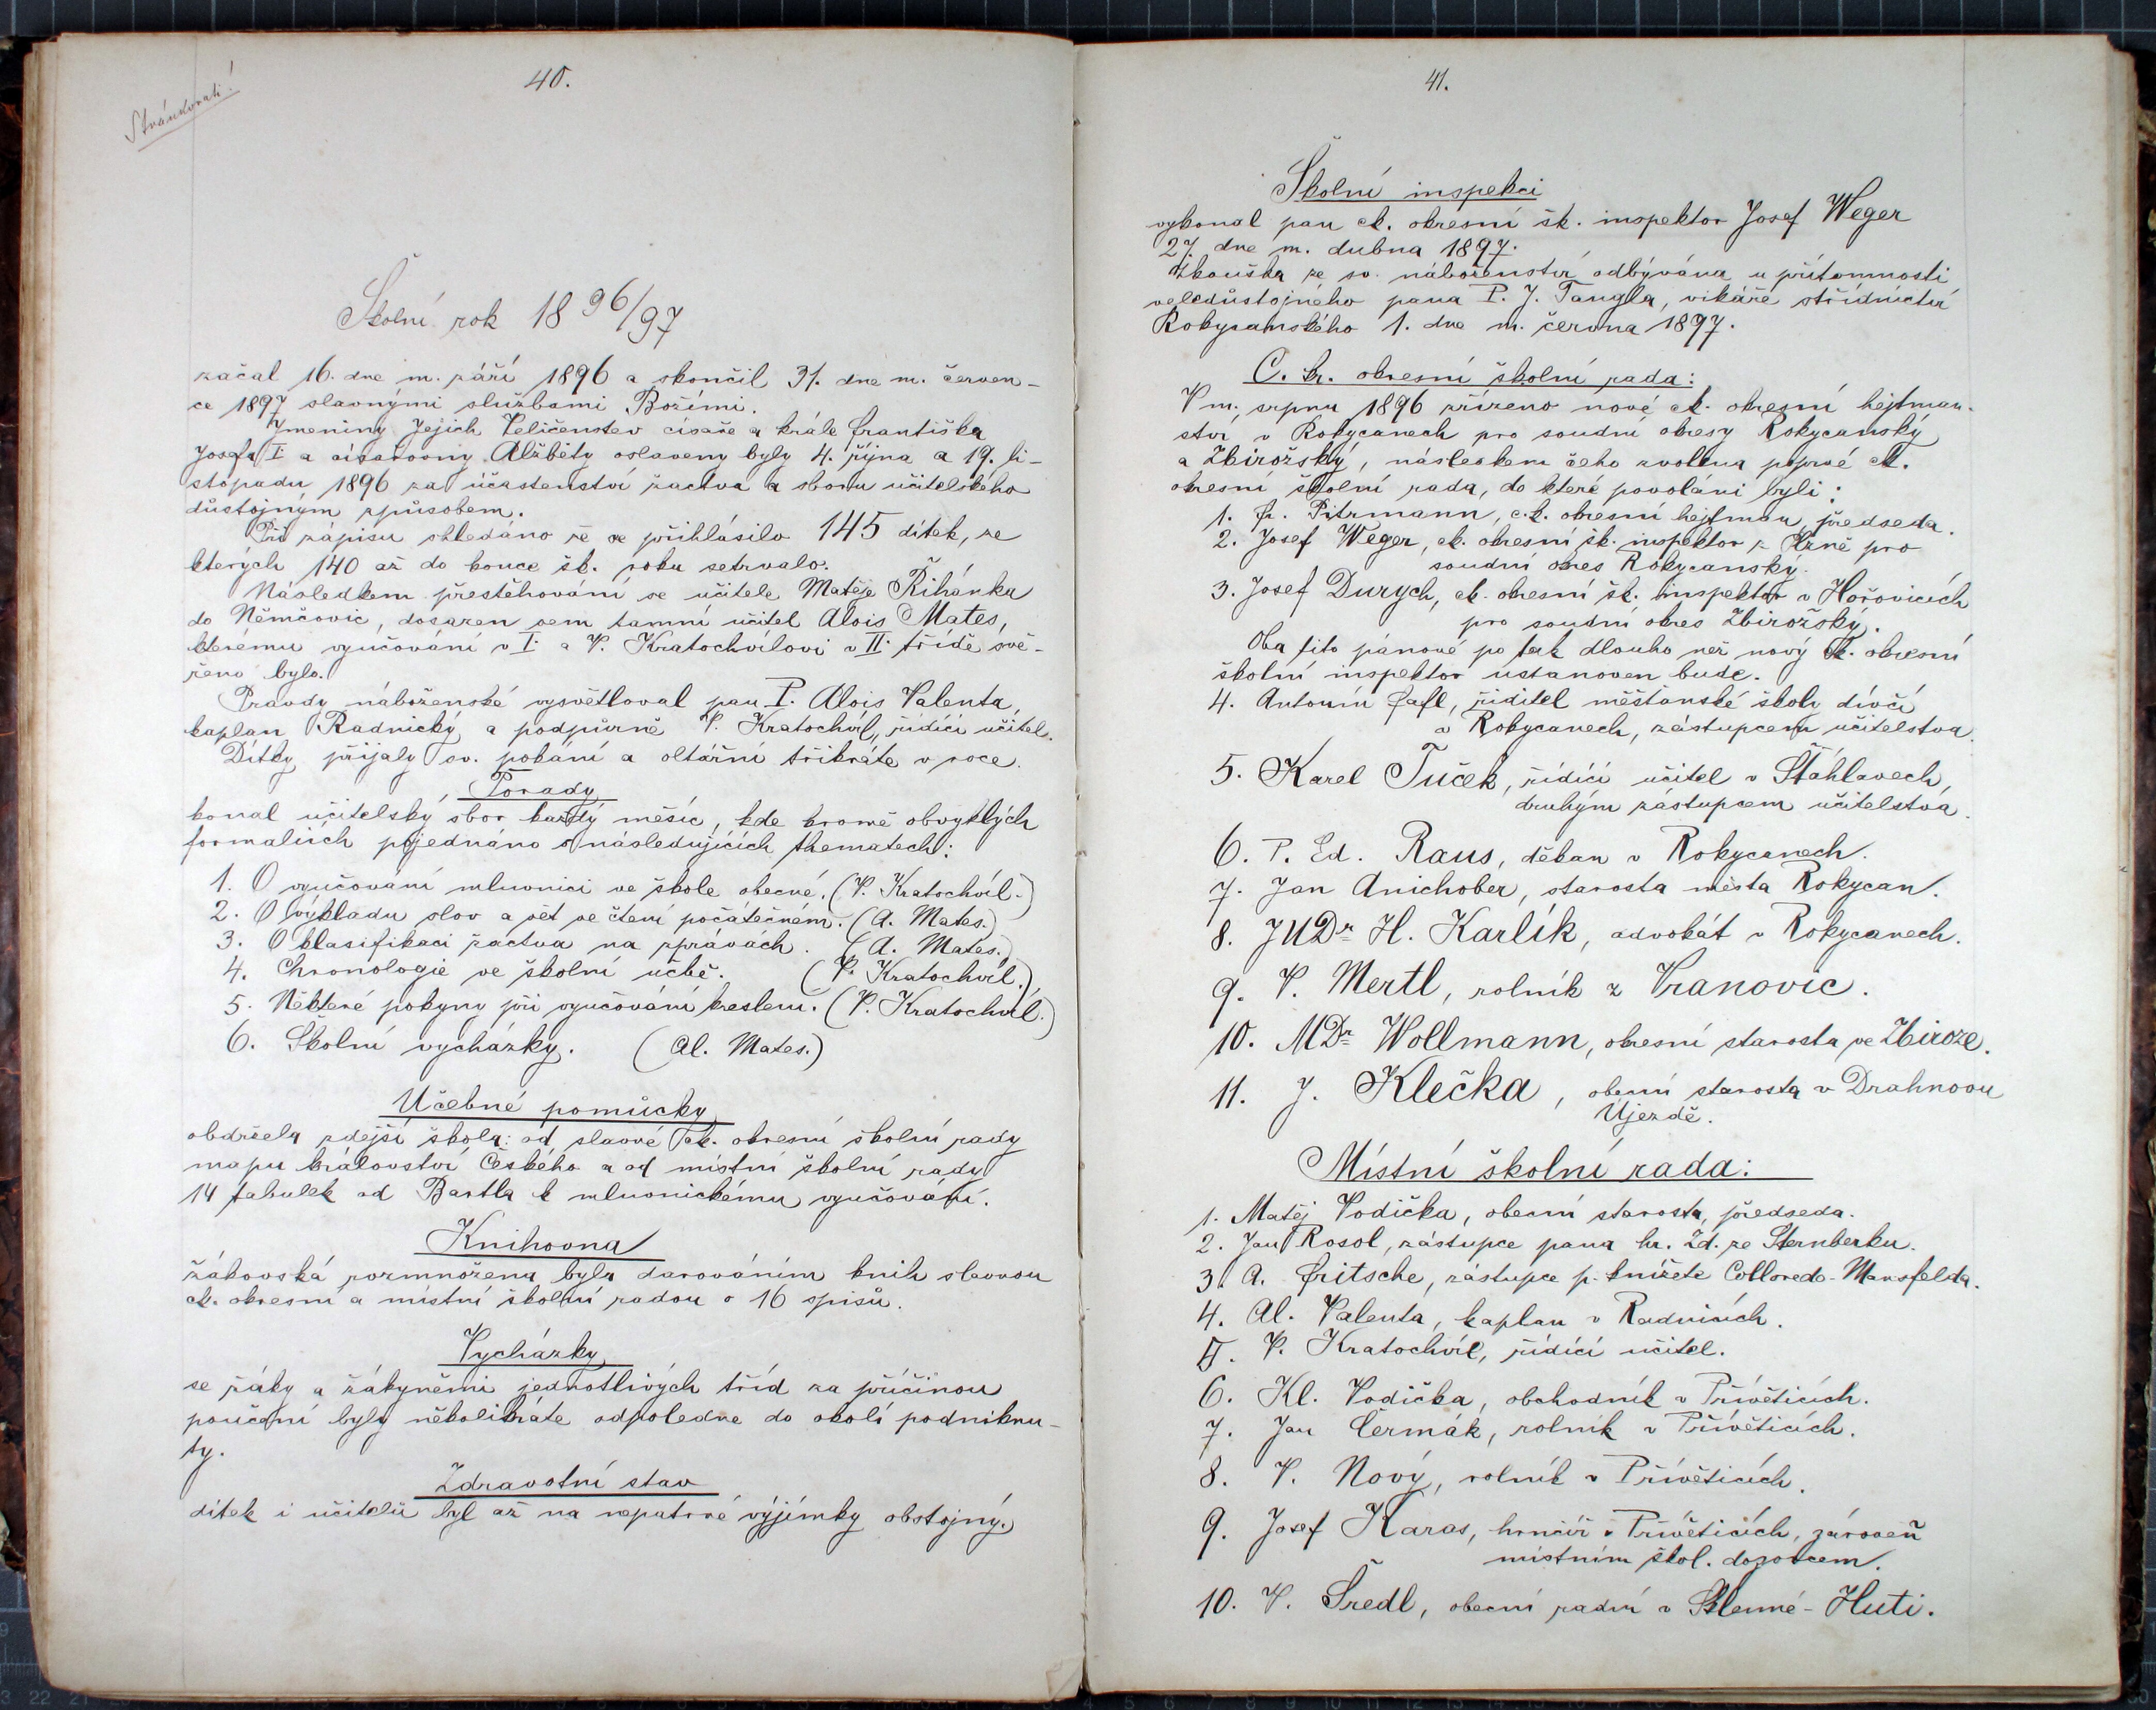 Stránkovati!
40.
Školní rok 1896/97
začal 16. dne m. září 1896 a skončil 31. dne m. červen-
ce 1897 slavnými službami Božími.
Jmeniny Jejich Veličenstev císaře a krále Františka
Josefa I. a císařovny Alžběty oslaveny byly 4. října a 19. li-
stopadu 1896 za účastenství žactva a sboru učitelského
důstojným způsobem.
Při zápisu shledáno že se přihlásilo 145 dítek, ze
kterých 140 až do konce šk. roku setrvalo.
Následkem přestěhování se učitele Matěje Řihánka
do Němčovic, dosazen sem tamní učitel Alois Mates,
kterému vyučování v I. a V. Kratochvílovi v II. třídě svě-
řeno bylo.
Pravdy náboženské vysvětloval pan P. Alois Valenta,
kaplan Radnický a podpůrně V. Kratochvíl, řídící učitel.
Dítky přijaly sv. pokání a oltářní třikráte v roce.
Porady
konal učitelský sbor každý měsíc, kde kromě obvyklých
formaliích pojednáno o následujících thematech:
1. O vyučování mluvnici ve škole obecné. (V. Kratochvíl.)
2. O výkladu slov a vět ve čtení počátečném. (A. Mates.)
3. O klasifikaci žactva na zprávách. (A. Mates.)
4. Chronologie ve školní učbě. (V. Kratochvíl.)
5. Některé pokyny při vyučování kreslení. (V. Kratochvíl.)
6. Školní vycházky. (Al. Mates.)
Učebné pomůcky
obdržela zdejší škola: od slavné ck. okresní školní rady
mapu království Českého a od místní školní rady
14 tabulek od Bartla k mluvnickému vyučování.
Knihovna
žákovská rozmnožena byla darováním knih slavnou
ck. okresní a místní školní radou o 16 spisů.
Vycházky
se žáky a žákyněmi jednotlivých tříd za příčinou
poučení byly několikráte odpoledne do okolí podniknu-
ty.
Zdravotní stav
dítek i učitelů byl až na nepatrné výjimky obstojný.
41.
Školní inspekci
vykonal pan ck. okresní šk. inspektor Josef Weger
27. dne m. dubna 1897.
Zkouška ze sv. náboženství odbývána u přítomnosti
veledůstojného pana P. J. Tangla, vikáře střídnictví
Rokycanského 1. dne m. června 1897.
C. kr. okresní školní rada:
V m. srpnu 1896 zřízeno nové ck. okresní hejtman-
ství v Rokycanech pro soudní okresy Rokycanský
a Zbirožský, následkem čeho zvolena poprvé ck.
okresní školní rada, do které povoláni byli:
1. Fr. Pitrmann, c.k. okresní hejtman, předseda.
2. Josef Weger, ck. okresní šk. inspektor z Plzně pro
soudní okres Rokycanský.
3. Josef Durych, ck. okresní šk. inspektor v Hořovicích
pro soudní okres Zbirožský.
Oba tito pánové po tak dlouho než nový ck. okresní
školní inspektor ustanoven bude.
4. Antonín Fafl, řiditel měšťanské školy dívčí
v Rokycanech, zástupcem učitelstva.
5. Karel Tuček, řídící učitel v Šťáhlavech,
druhým zástupcem učitelstva.
6. P. Ed. Raus, děkan v Rokycanech.
7. Jan Anichober, starosta města Rokycan.
8. JUDr. H. Karlík, advokát v Rokycanech.
9. V. Mertl, rolník z Vranovic.
10. MDr. Wollmann, okresní starosta ve Zbiroze.
11. J. Klečka, obecní starosta v Drahňovu
Újezdě.
Místní školní rada:
1. Matěj Vodička, obecní starosta, předseda.
2. Jan Rosol, zástupce pana hr. Zd. ze Sternberku.
3. A. Fritsche, zástupce p. knížete Colloredo-Mansfelda.
4. Al. Valenta, kaplan v Radnicích.
5. V. Kratochvíl, řídící učitel.
6. Kl. Vodička, obchodník v Přívěticích.
7. Jan Čermák, rolník v Přívěticích.
8. V. Nový, rolník v Přívěticích.
9. Josef Karas, hrnčíř v Přívěticích, zároveň
místním škol. dozorcem.
10. V. Šredl, obecní radní v Sklenné-Huti.